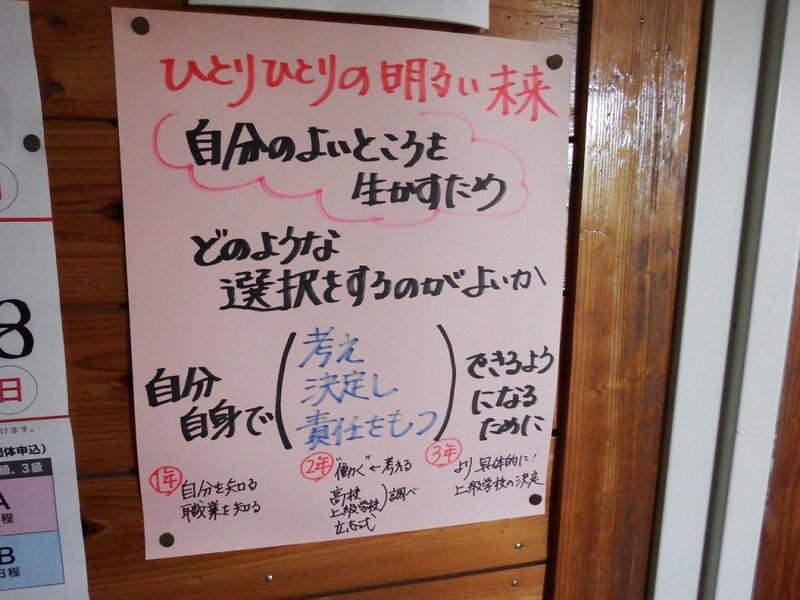 ひとりひとりの明るい未来
自分のよいところを
生かすため
どのような
選択をするのがよいか
自分
自身で
考え
決定し
責任をもつ
できるよう
になる
ために
1年
自分を知る
職業を知る
2年
"働く"←考える
高校
上級学校)調べ
立志式
3年
より具体的に!
上級学校の決定
8
日
けます。
団体申込)
級、3級
A
程
B
日程